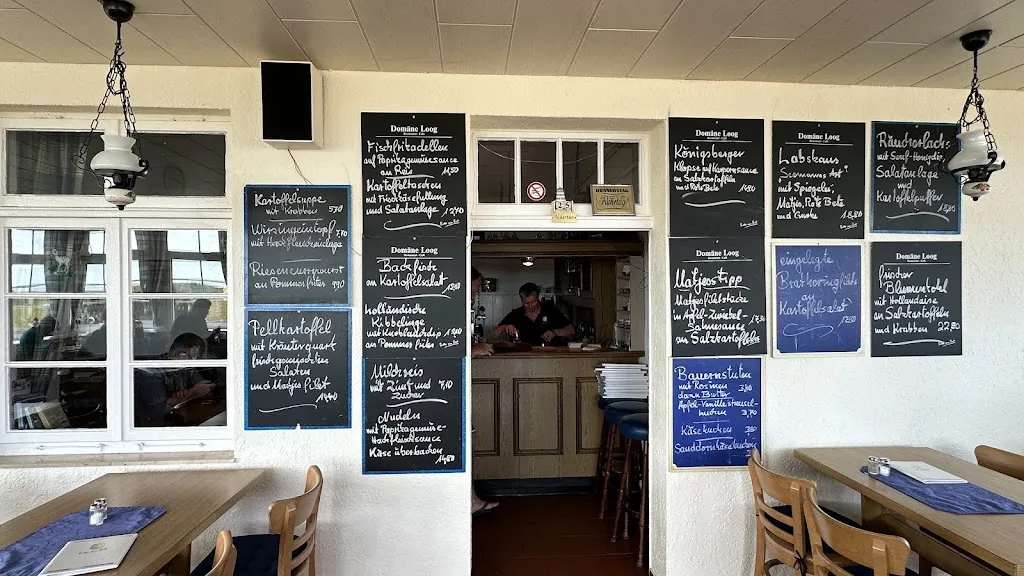 Kartoffelsuppe
mit Krabben 5,90
Wirsingeintopf 7,90
mit Hackfleischeinlage
Riesencurrywurst
an Pommes frites 9,90
Pellkartoffel
mit Kräuterquark
Salaten
und Matjesfilet
14,40
Domäne Loog
Restaurant · Café
Fischfrikadellen
auf Paprikagemüsesauce
an Reis 11,50
Kartoffeltaschen
mit Frischkäsefüllung
und Salatanlage 12,40
Domäne Loog
Restaurant · Café
Backfisch
an Kartoffelsalat
Holländische
Kibbelinge
mit Knoblauchdip
an Pommes frites
Milchreis
mit Zimt und 7,10
Zucker
Nudeln
mit Paprikagemüse-
Hackfleischsauce
Käse überbacken
14,60
DONNERSTAG
Ruhetag
Domäne Loog
Restaurant · Café
Königsberger
Klopse auf Kapernsauce
an Salzkartoffeln
und Rote Bete 14,90
Domäne Loog
Restaurant · Café
Labskaus
"Seemanns Art"
mit Spiegelei,
Matjes, Rote Bete
und Gurke 18,80
Domäne Loog
Restaurant · Café
Räucherlachs
mit Senf-Honigdip
Salatanlage
und
Kartoffelpuffer
Domäne Loog
Restaurant · Café
Matjestipp
Matjesfiletstücke
in Apfel-Zwiebel-
Sahnesauce
an Salzkartoffeln
eingelegte
Bratheringfilets
an
Kartoffelsalat
Domäne Loog
Restaurant · Café
frischer
Blumenkohl
mit Hollandaise
an Salzkartoffeln
und Krabben 22,80
Bauernstuten
mit Rosinen
dann Butter
Apfel-Vanille streusel-
kuchen 3,70
Käsekuchen
Sanddorntorte